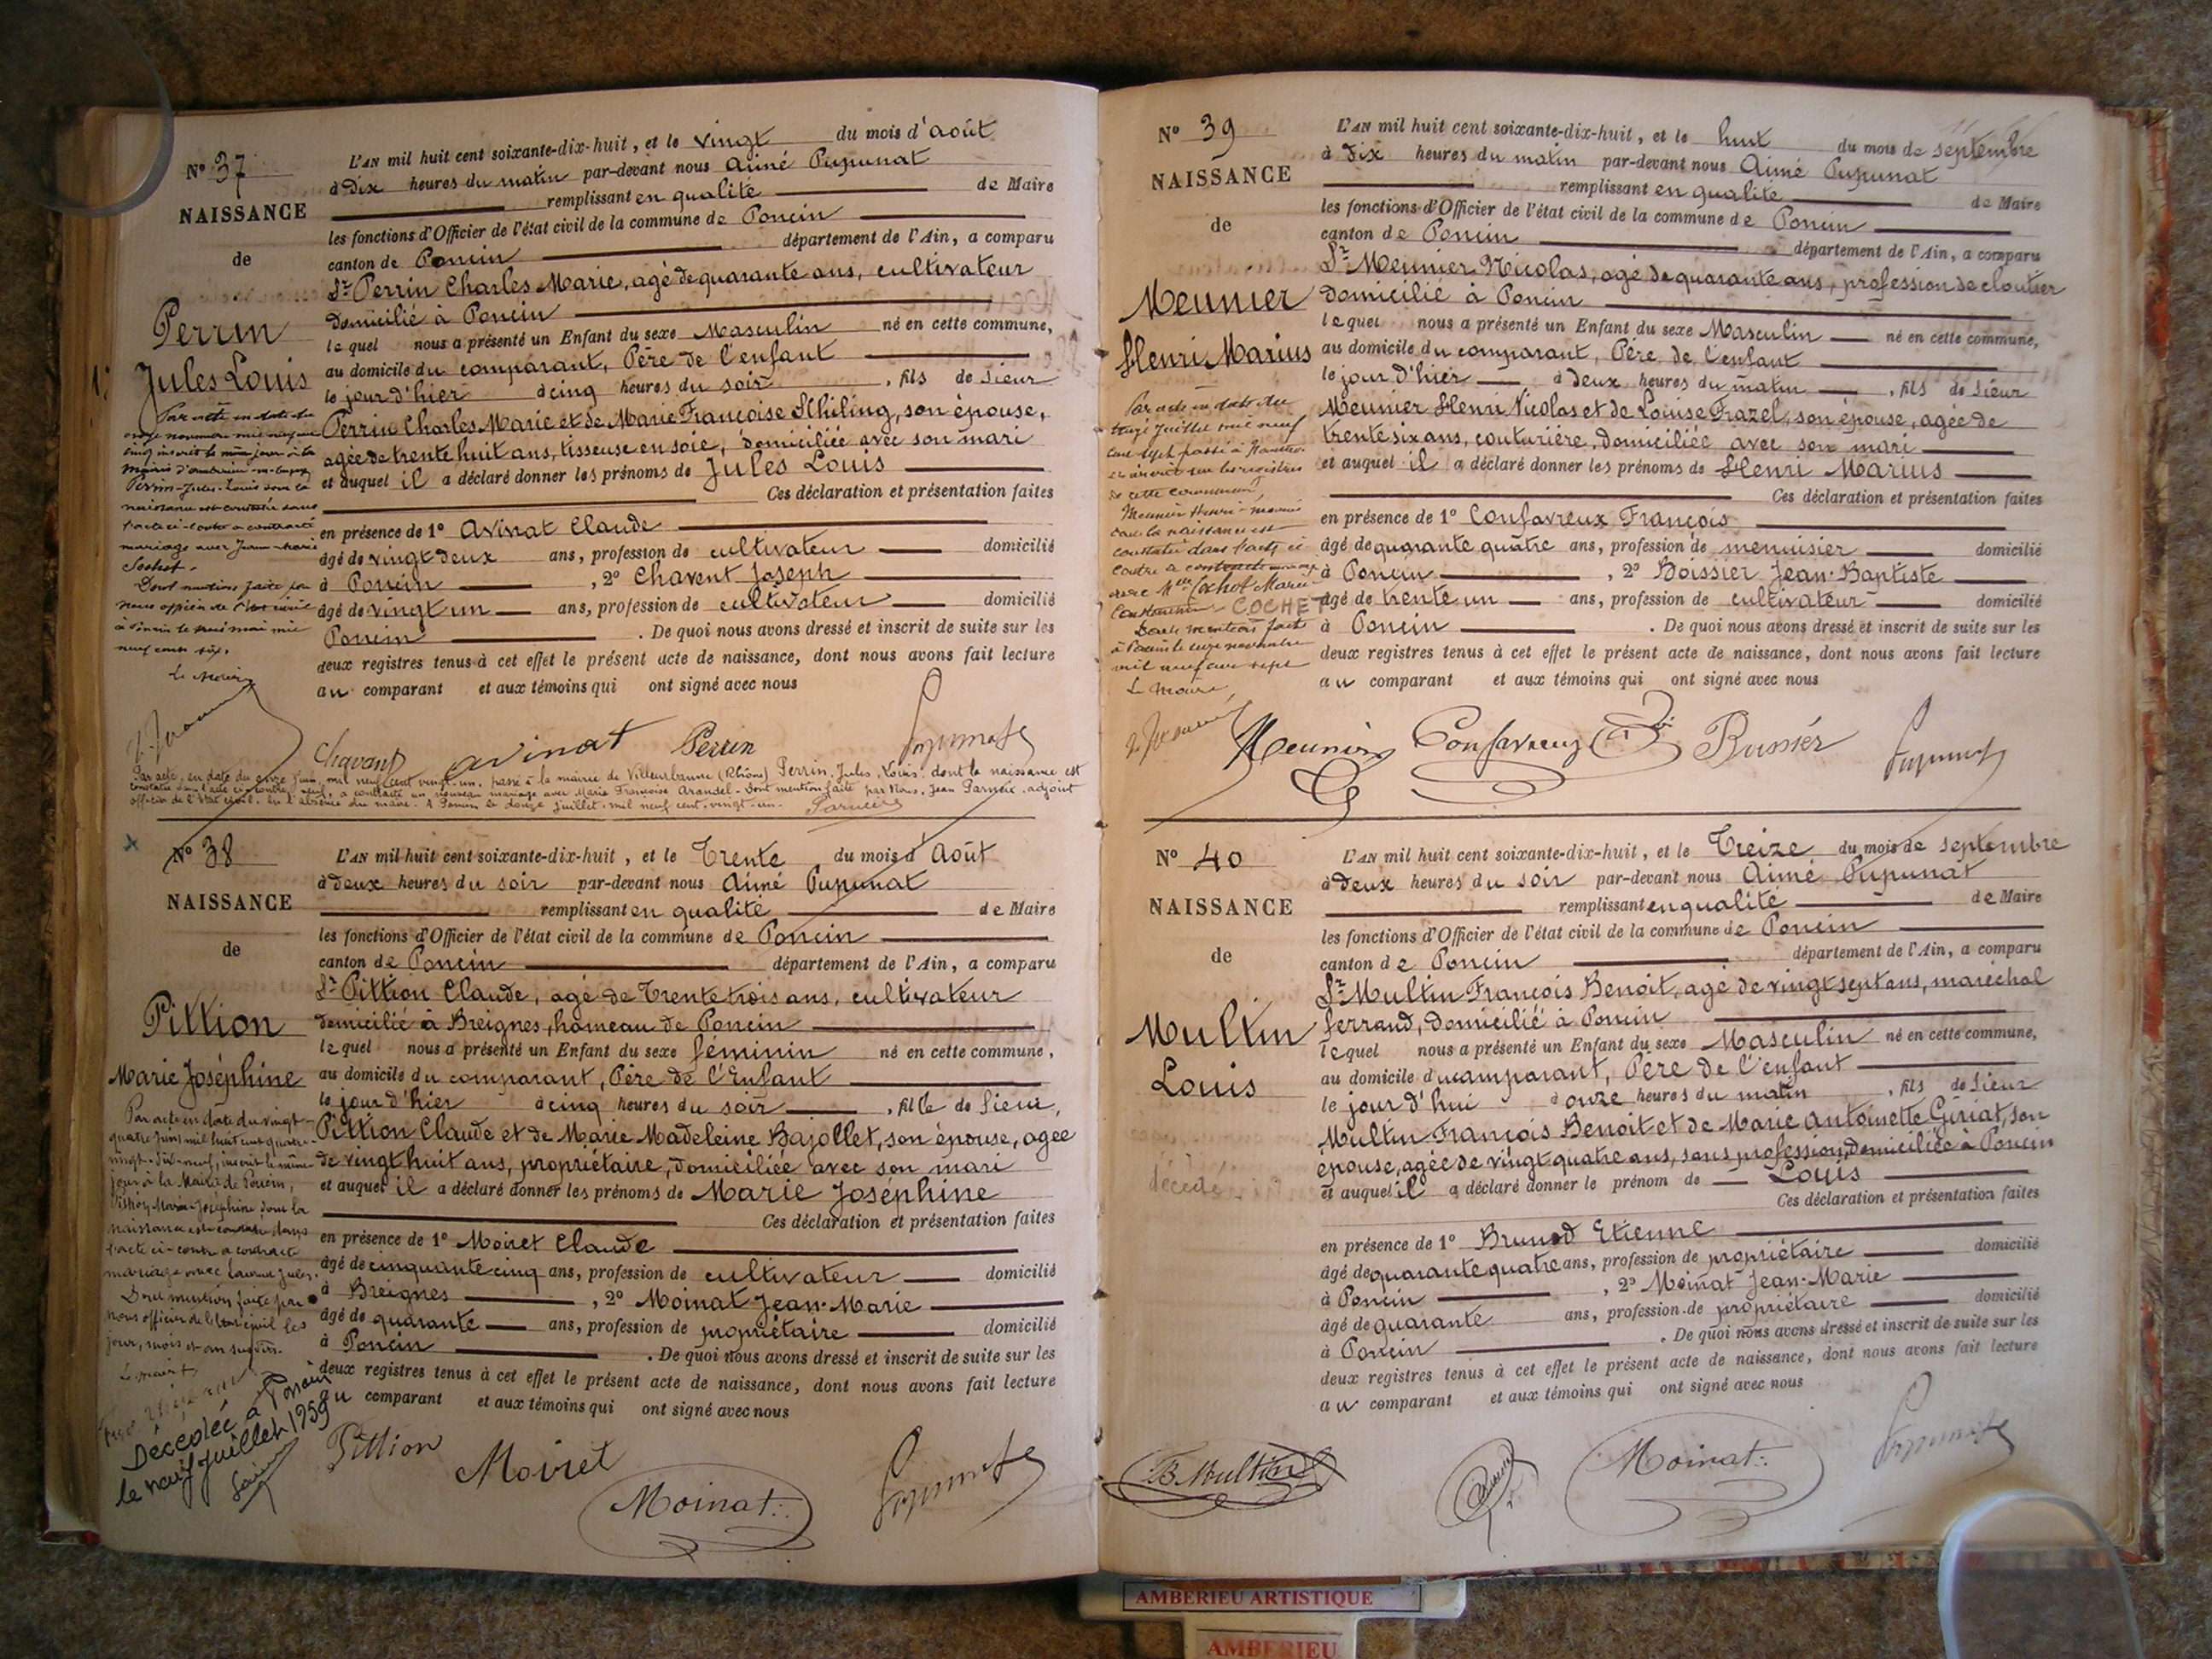 N° 37
NAISSANCE
de
Perrin
Jules Louis
L'AN mil huit cent soixante-dix-huit, et le vingt du mois d'août
à dix heures du matin par-devant nous Aimé Pupunat
remplissant en qualité de Maire
les fonctions d'Officier de l'état civil de la commune de Poncin
canton de Poncin département de l'Ain, a comparu
Sr Perrin Charles Marie, agé de quarante ans, cultivateur
domicilié à Poncin
lequel nous a présenté un Enfant du sexe Masculin né en cette commune,
au domicile du comparant, Père de l'enfant
le jour d'hier à cinq heures du soir, fils de Sieur
Perrin Charles Marie et de Marie Françoise Schiling, son épouse,
agée de trente huit ans, tisseuse en soie, domiciliée avec son mari
et auquel il a déclaré donner les prénoms de Jules Louis
Ces déclaration et présentation faites
en présence de 1° Avinat Claude
âgé de vingt deux ans, profession de cultivateur domicilié
à Poncin, 2° Chavent Joseph
âgé de vingt un ans, profession de cultivateur domicilié
Poncin. De quoi nous avons dressé et inscrit de suite sur les
deux registres tenus à cet effet le présent acte de naissance, dont nous avons fait lecture
au comparant et aux témoins qui ont signé avec nous
Par acte en date du
onze novembre mil neuf cent
cinq inscrit le même jour à la
mairie d'Ambérieu-en-Bugey
Perrin-Jules-Louis dont la
naissance est constatée dans
l'acte ci-contre a contracté
mariage avec Jeanne Marie
Cochet.
Dont mention faite par
nous officier de l'état civil
à Poncin le trois mai mil
neuf cent six.
Le Maire
Chavant avinat Perrin Pupunat
Par acte, en date du onze juin, mil neuf cent vingt-un, passé à la mairie de Villeurbanne (Rhône) Perrin, Jules, Louis, dont la naissance est
constatée dans l'acte ci-contre, a contracté un nouveau mariage avec Marie Françoise Arandel. Dont mention faite par Nous, Jean Parneix, adjoint
officier de l'état civil, en l'absence du maire. A Poncin le douze juillet, mil neuf cent vingt-un.
N° 38
NAISSANCE
de
Pittion
Marie Joséphine
L'AN mil huit cent soixante-dix-huit, et le Trente du mois d'Août
à deux heures du soir par-devant nous Aimé Pupunat
remplissant en qualité de Maire
les fonctions d'Officier de l'état civil de la commune de Poncin
canton de Poncin département de l'Ain, a comparu
Sr Pittion Claude, agé de Trente trois ans, cultivateur
domicilié à Breignes, hameau de Poncin
lequel nous a présenté un Enfant du sexe féminin né en cette commune,
au domicile du comparant, Père de l'Enfant
le jour d'hier à cinq heures du soir, fille de Sieur,
Pittion Claude et de Marie Madeleine Bajollet, son épouse, agée
de vingt huit ans, propriétaire, domiciliée avec son mari
et auquel il a déclaré donner les prénoms de Marie Joséphine
Ces déclaration et présentation faites
en présence de 1° Moiret Claude
âgé de cinquante cinq ans, profession de cultivateur domicilié
à Breignes, 2° Moinat Jean-Marie
âgé de quarante ans, profession de propriétaire domicilié
à Poncin. De quoi nous avons dressé et inscrit de suite sur les
deux registres tenus à cet effet le présent acte de naissance, dont nous avons fait lecture
au comparant et aux témoins qui ont signé avec nous
Par acte en date du vingt-
quatre Juin mil huit cent quatre-
vingt-dix-neuf, inscrit le même
jour à la Mairie de Poncin,
Pittion Marie Joséphine dont la
naissance est constatée dans
l'acte ci-contre a contracté
mariage avec Jules.
Dont mention faite par
nous officier de l'état civil les
jour, mois et an susdits.
Le maire
Décédée à Poncin
le neuf juillet 1959
Pittion Moiret Moinat Pupunat
N° 39
NAISSANCE
de
Meunier
Henri Marius
L'AN mil huit cent soixante-dix-huit, et le huit du mois de septembre
à dix heures du matin par-devant nous Aimé Pupunat
remplissant en qualité de Maire
les fonctions d'Officier de l'état civil de la commune de Poncin
canton de Poncin département de l'Ain, a comparu
Sr Meunier Nicolas, agé de quarante ans, profession de cloutier
domicilié à Poncin
lequel nous a présenté un Enfant du sexe Masculin né en cette commune,
au domicile du comparant, Père de l'enfant
le jour d'hier à deux heures du matin, fils de Sieur
Meunier Henri Nicolas et de Louise Trazel, son épouse, agée de
trente six ans, couturière, domiciliée avec son mari
et auquel il a déclaré donner les prénoms de Henri Marius
Ces déclaration et présentation faites
en présence de 1° Confavreux François
âgé de quarante quatre ans, profession de menuisier domicilié
à Poncin, 2° Boissier Jean-Baptiste
âgé de trente un ans, profession de cultivateur domicilié
à Poncin. De quoi nous avons dressé et inscrit de suite sur les
deux registres tenus à cet effet le présent acte de naissance, dont nous avons fait lecture
au comparant et aux témoins qui ont signé avec nous
Par acte en date du
treize Juillet mil neuf
cent sept passé à
et inscrit sur les registres
de cette commune,
Meunier Henri-Marius
dont la naissance est
constatée dans l'acte ci
contre a contracté mariage
avec Mlle Cochet Marie
COCHET
Dont mention faite
à Poncin le onze novembre
mil neuf cent sept
Le Maire,
Meunier Confavreux Pupunat
N° 40
NAISSANCE
de
Multin
Louis
décédé
L'AN mil huit cent soixante-dix-huit, et le Treize du mois de septembre
à deux heures du soir par-devant nous Aimé Pupunat
remplissant en qualité de Maire
les fonctions d'Officier de l'état civil de la commune de Poncin
canton de Poncin département de l'Ain, a comparu
Sr Multin François Benoit, agé de vingt sept ans, maréchal
ferrand, domicilié à Poncin
lequel nous a présenté un Enfant du sexe Masculin né en cette commune,
au domicile du comparant, Père de l'enfant
le jour d'hui à onze heures du matin, fils de Sieur
Multin François Benoit et de Marie Antoinette Giriat, son
épouse, agée de vingt quatre ans, sans profession, domiciliée à Poncin
et auquel il a déclaré donner le prénom de Louis
Ces déclaration et présentation faites
en présence de 1° Brunod Etienne
âgé de quarante quatre ans, profession de propriétaire domicilié
à Poncin, 2° Moinat Jean-Marie
âgé de quarante ans, profession de propriétaire domicilié
à Poncin. De quoi nous avons dressé et inscrit de suite sur les
deux registres tenus à cet effet le présent acte de naissance, dont nous avons fait lecture
au comparant et aux témoins qui ont signé avec nous
B. Multin Moinat Pupunat
AMBERIEU ARTISTIQUE
AMBERIEU